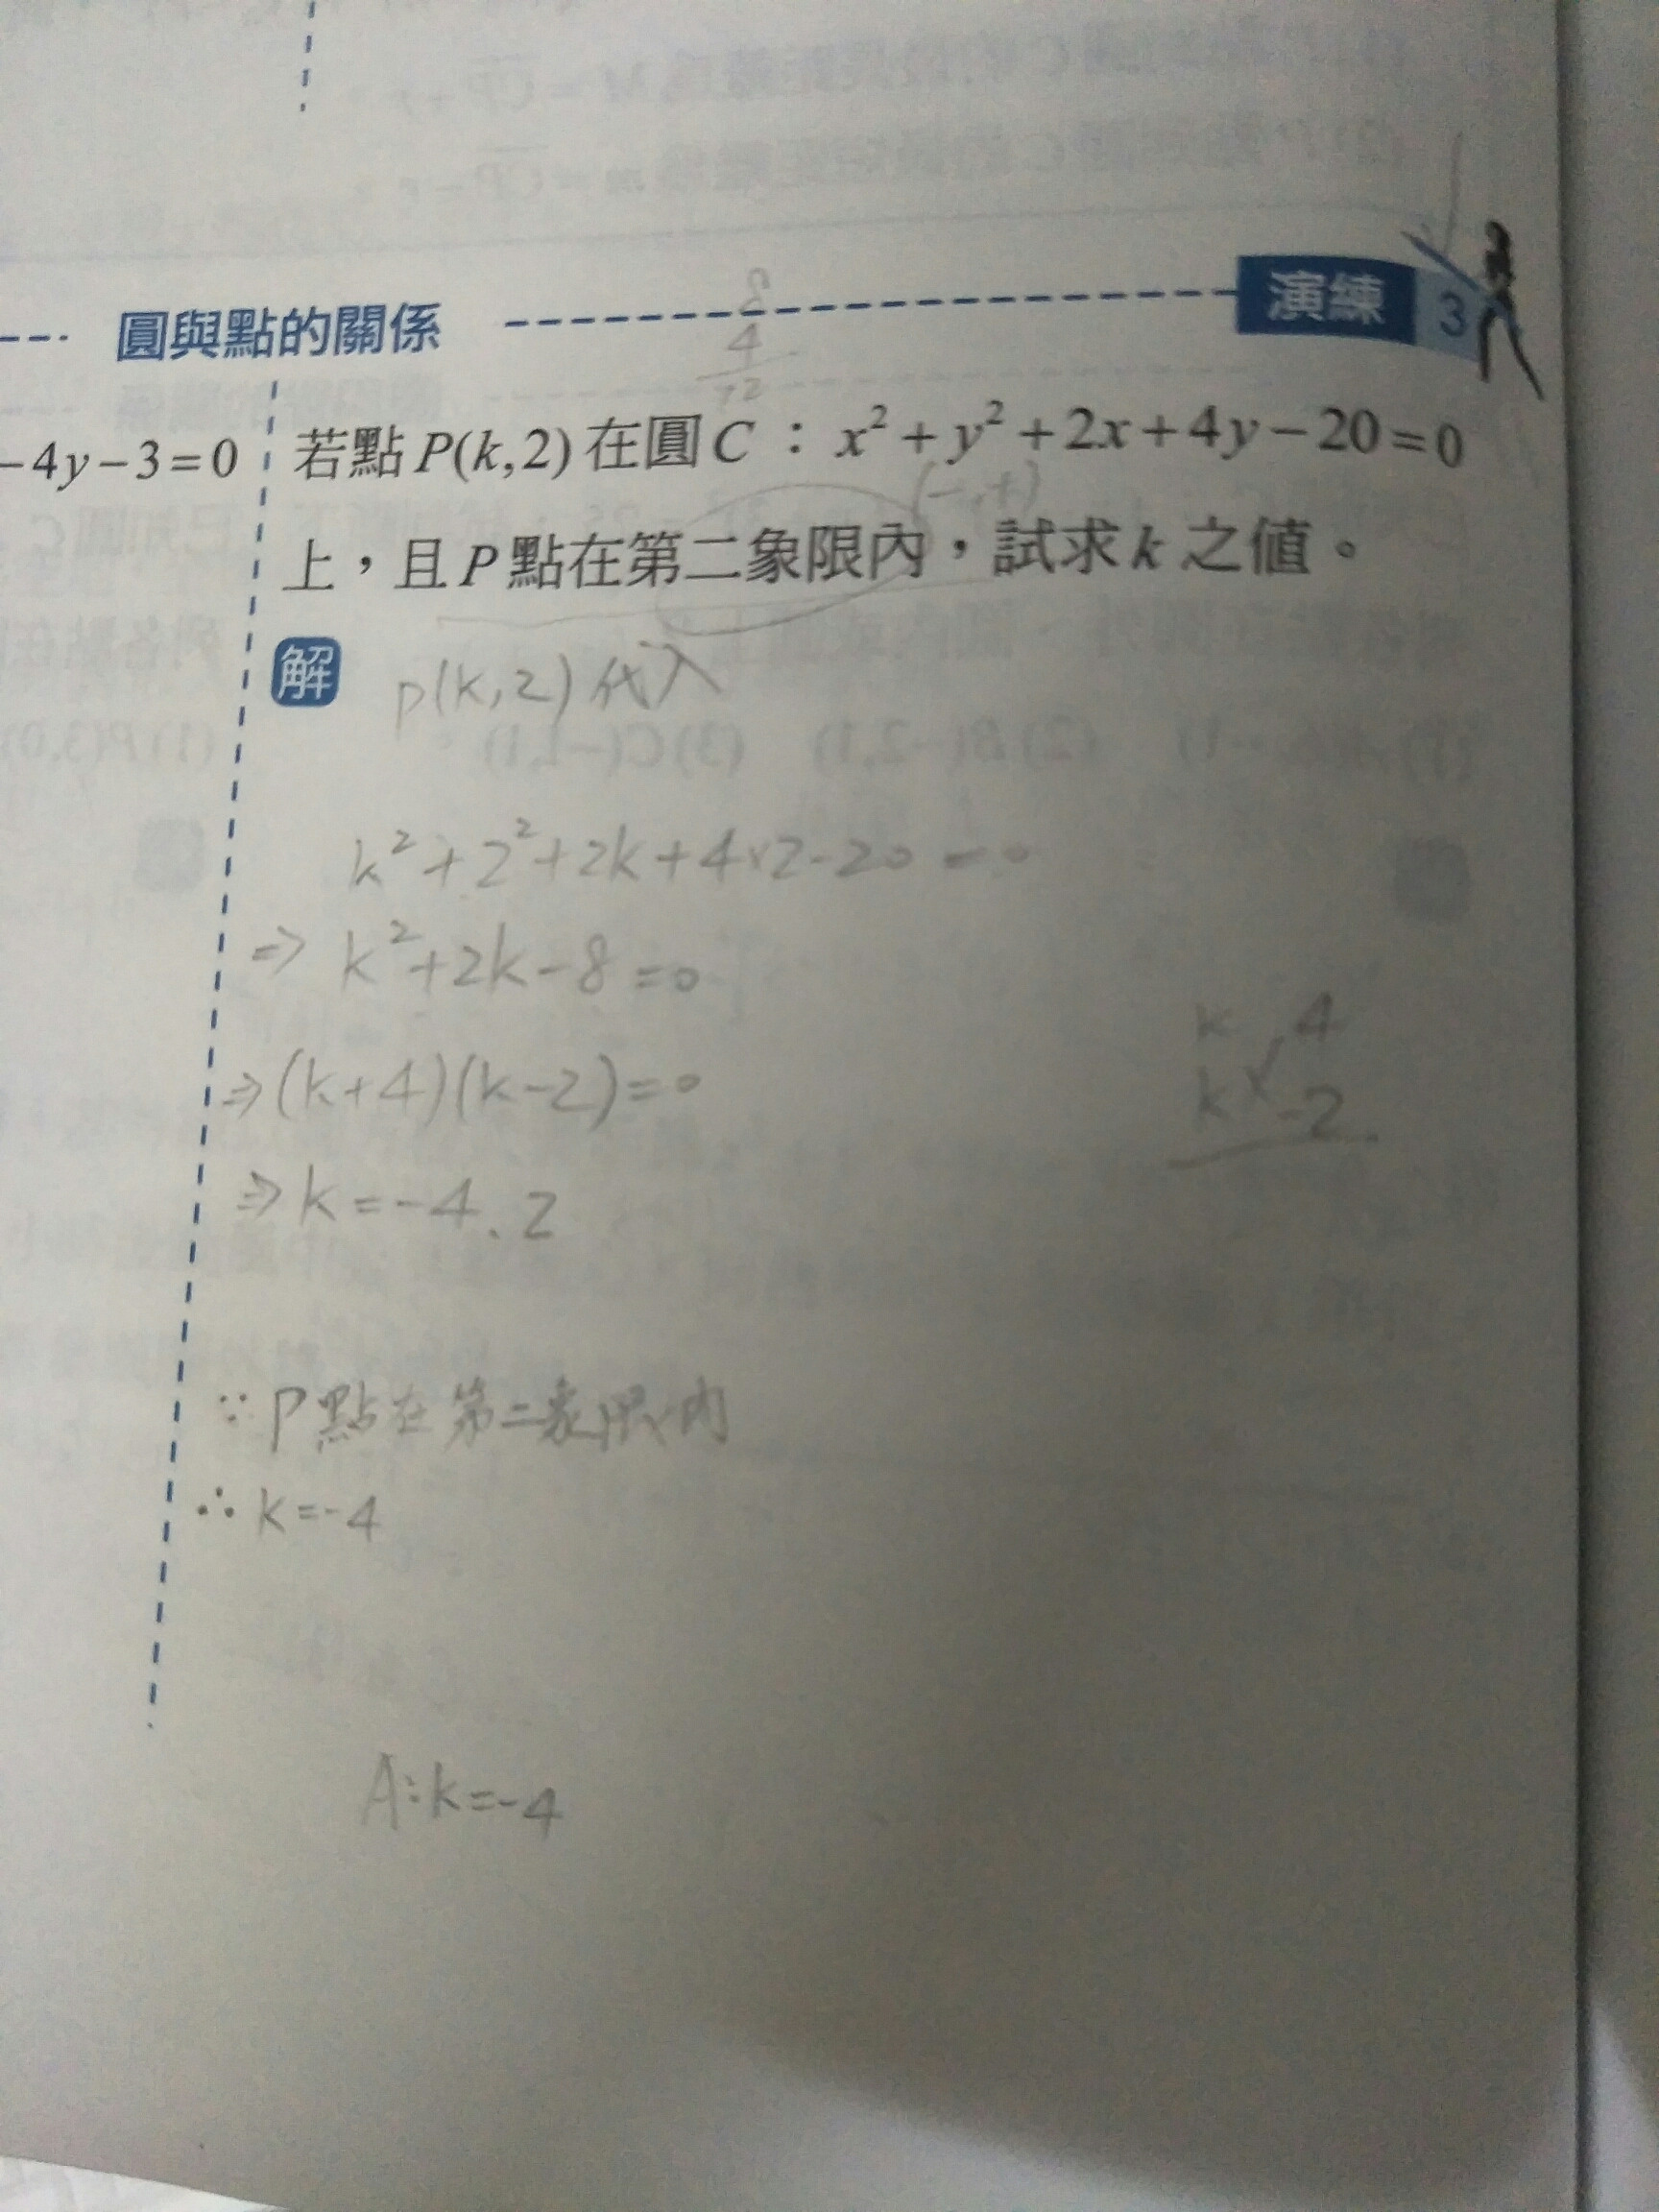 圓與點的關係
演練 3
8
4
12
-4y-3=0
若點P(k,2)在圓C：x²+y²+2x+4y-20=0
(-,+)
上，且P點在第二象限內，試求k之值。
解 p(k,2)代入
k²+2²+2k+4×2-20=0
⇒ k²+2k-8=0
k 4
⇒(k+4)(k-2)=0
k -2
⇒k=-4、2
∵P點在第二象限內
∴k=-4
A:k=-4